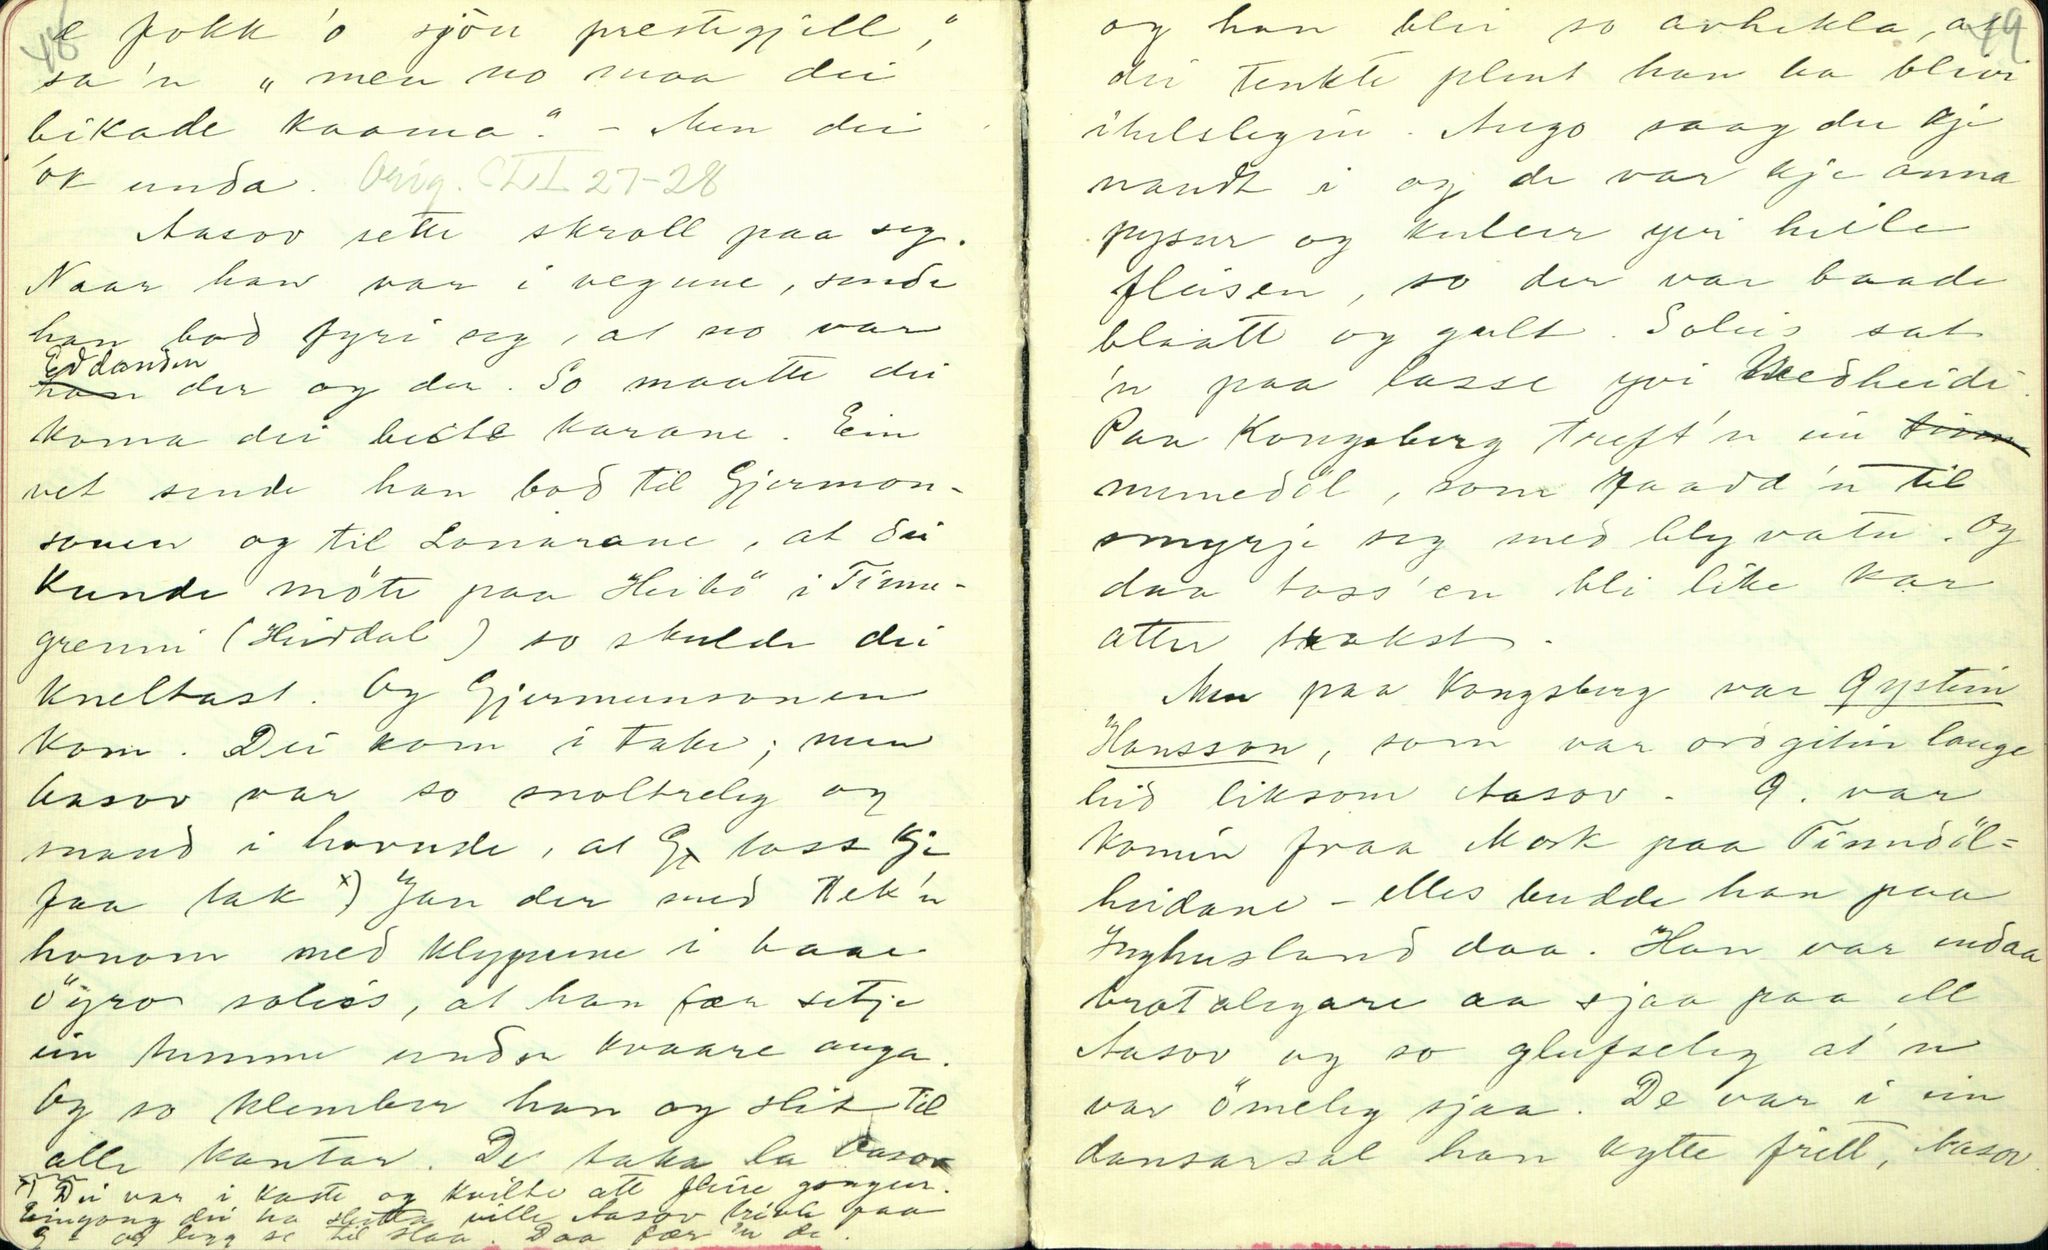 48
e fokk 'o sjöu prestegjell,"
sa 'n „men no maa dei
bikade kaama". - Men dei
ok unda. Orig. CLI 27-28
Aasov sette skroll paa seg.
Naar han var i vegune, sende
han bod fyri seg, at no var
Eddanden
han der og der. So maatte dei
koma dei beste karane. Ein
vet sende han bod til Gjermon-
sonen og til Lonarane, at dei
kunde möte paa Heibö i Tinne-
grenni (Hitterdal) so skulde dei
kneltast. Og Gjermunsonen
kom. Dei kom i take; men
Aasov var so snoltreleg og
snaud i hovude, at Gj. toss kje
faa tak x) Gjan der med tek'n
honom med klypune i baae
öyro soleis, at han fær setje
ein tumme under kvaare auga.
Og so klember han og slit til
alle kantar. De taka la Aasov
x) Dei var i kaste og kvilte att fleire gonger.
Eingong dei ha slitta ville Aasov trive paa
G i og legg se til slaa. Daa fær 'n de.
49
og han blir so avhekla, at
dei tenkte plent han ha blivi
ihelslegin. Augo saag du kje
naudt i og de var kje anna
pysur og kuler yvi heile
fleisen, so der var baade
blaatt og gult. Soleis sat
'n paa lasse yvi Medheidi.
Paa Kongsberg treft'n ein
numedöl, som raadd 'n til
smyrje seg med blyvatn. Og
daa toss'en bli like kar
atter straks.
Men paa Kongsberg var Øystein
Hansson, som var ordgitin lange
leid liksom Aasov. Ø. var
komin fraa Mork paa Tinndöl=
heidane - elles budde han paa
Ynghusland daa. Han var endaa
brotalegare aa sjaa paa ell
Aasov og so glufseleg at'n
var ömeleg sjaa. De var i ein
dansarsal han kytte fritt, Aasov.